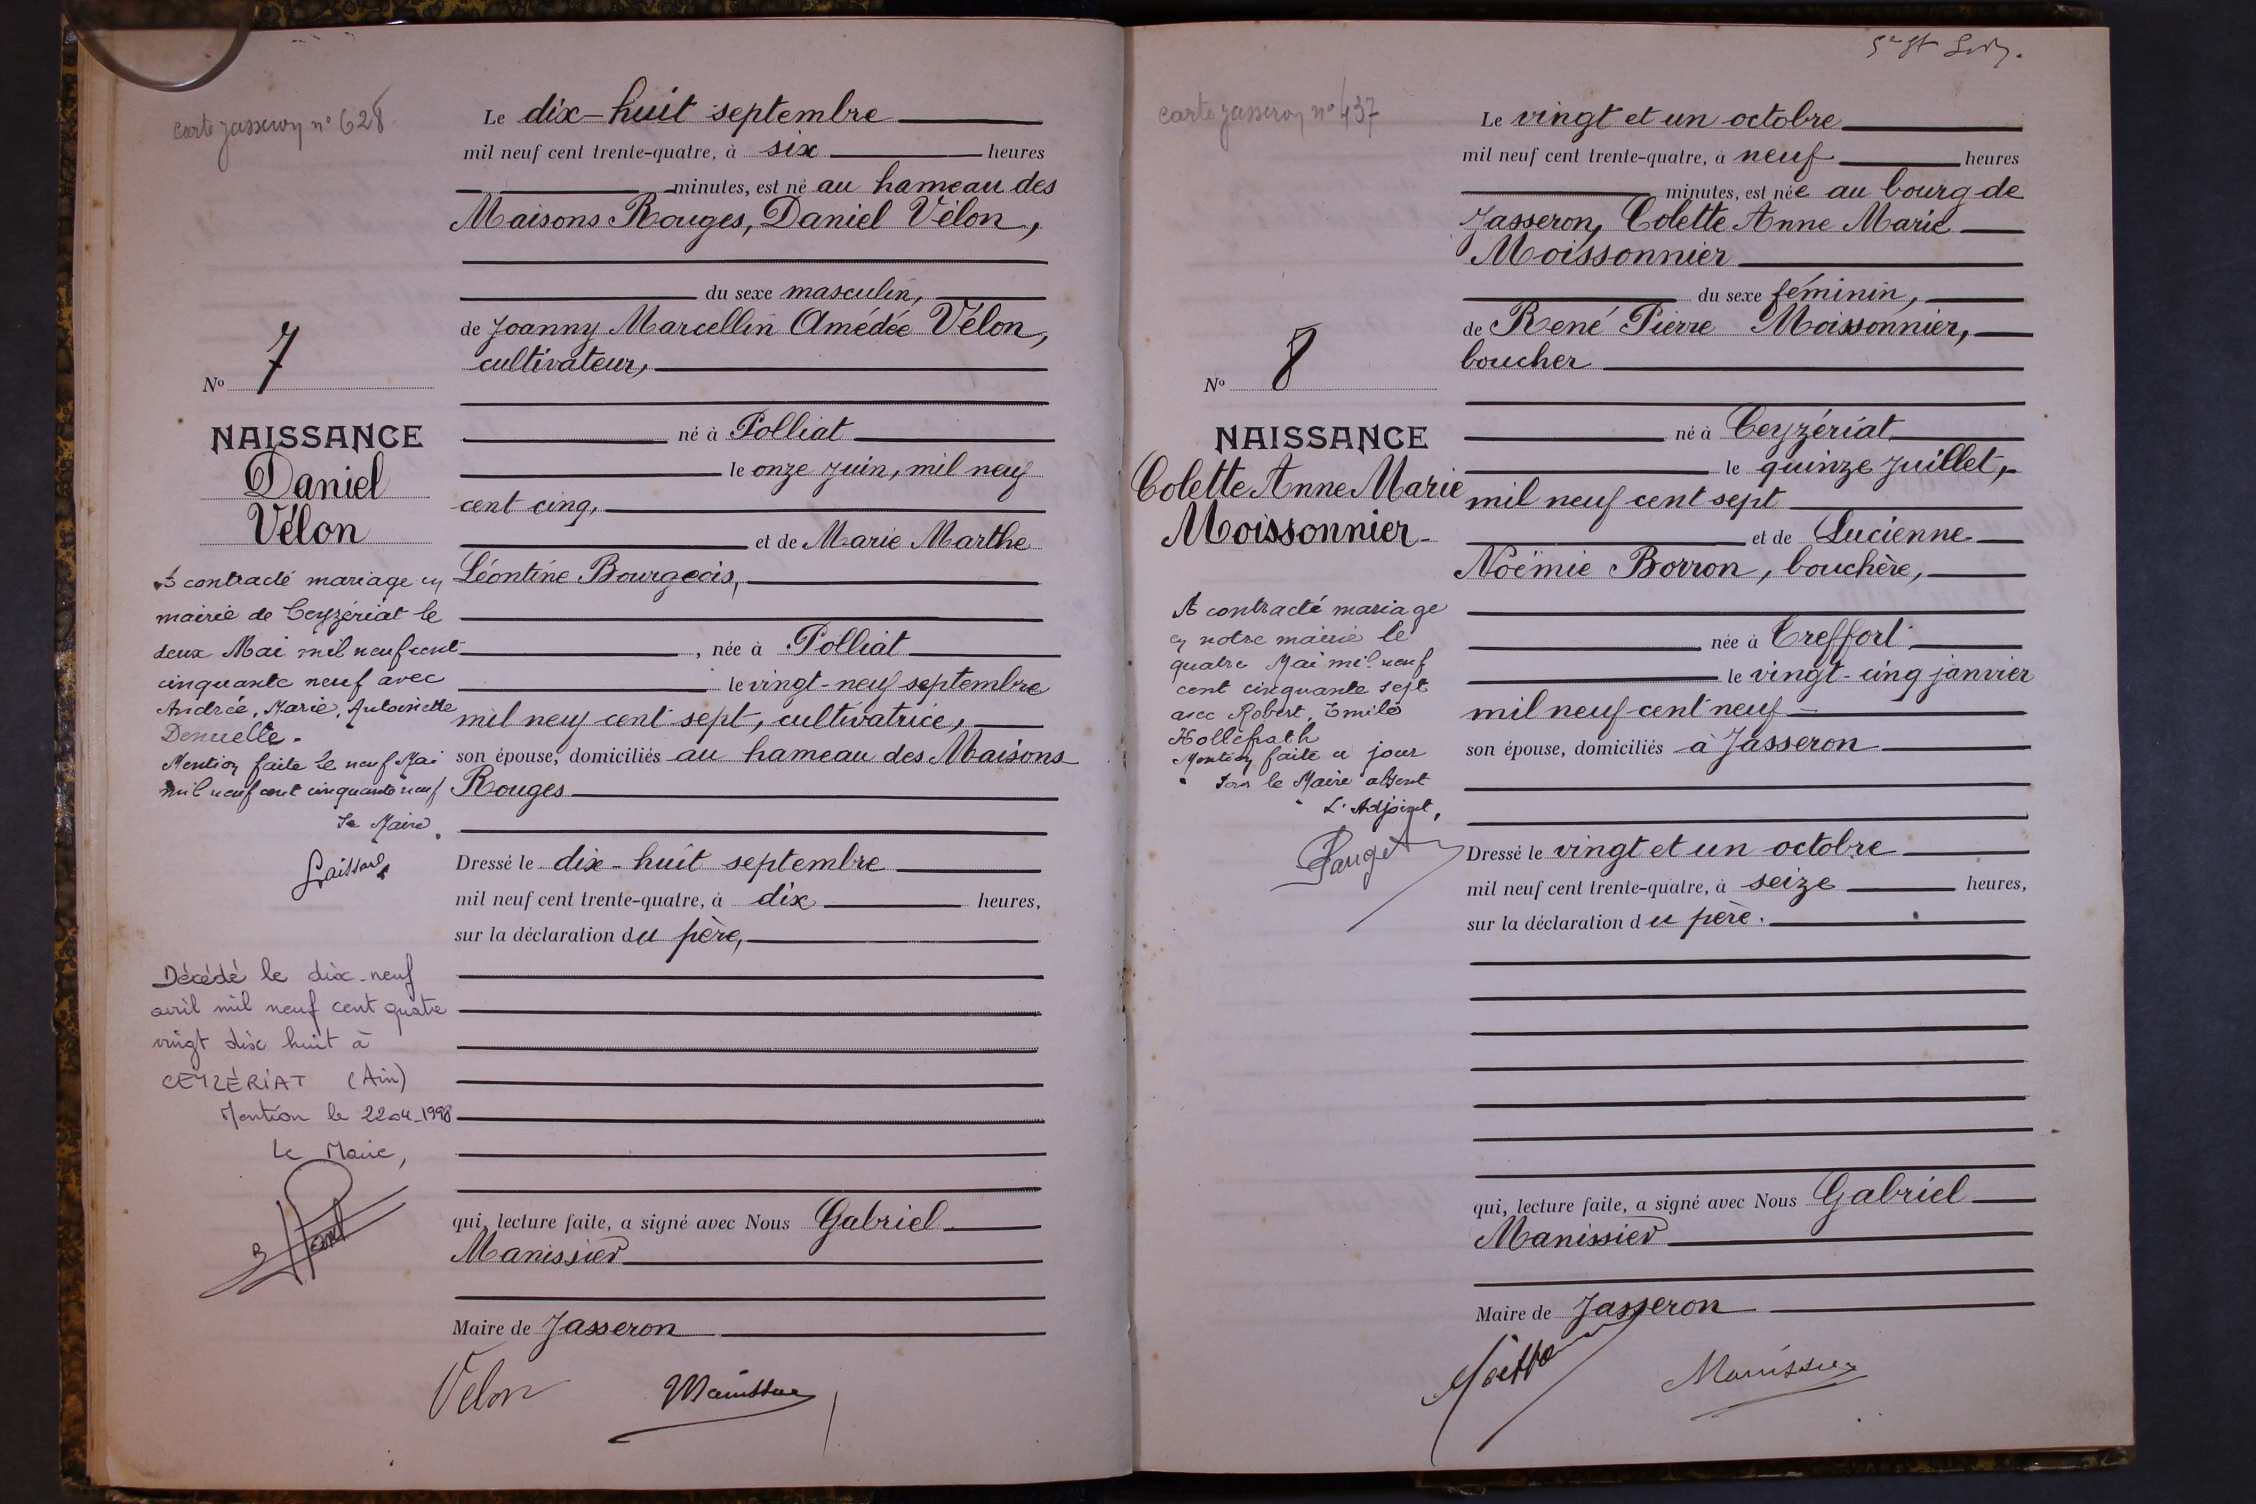 carte Jasseron n° 628
Le dix-huit septembre
mil neuf cent trente-quatre, à six heures
minutes, est né au hameau des
Maisons Rouges, Daniel Vélon,
du sexe masculin,
de Joanny Marcellin Amédée Vélon,
cultivateur,
No 7
NAISSANCE
Daniel
Vélon
né à Polliat
le onze juin, mil neuf
cent cinq,
et de Marie Marthe
Léontine Bourgeois,
, née à Polliat
le vingt-neuf septembre
mil neuf cent sept, cultivatrice,
son épouse, domiciliés au hameau des Maisons
Rouges
Dressé le dix-huit septembre
mil neuf cent trente-quatre, à dix heures,
sur la déclaration du père,
qui, lecture faite, a signé avec Nous Gabriel
Manissier
Maire de Jasseron
Vélon
A contracté mariage en
mairie de Ceyzériat le
deux Mai mil neuf cent
cinquante neuf avec
Andrée, Marie, Antoinette
Denuelle.
Mention faite le neuf Mai
mil neuf cent cinquante neuf
Le Maire.
Décédé le dix-neuf
avril mil neuf cent quatre
vingt dix huit à
CEYZÉRIAT (Ain)
Mention le 22-04-1998
Le Maire,
carte Jasseron n° 437
Le vingt et un octobre
mil neuf cent trente-quatre, à neuf heures
minutes, est née au bourg de
Jasseron, Colette Anne Marie
Moissonnier
du sexe féminin,
de René Pierre Moissonnier,
boucher
No 8
NAISSANCE
Colette Anne Marie
Moissonnier
né à Ceyzériat
le quinze juillet,
mil neuf cent sept
et de Lucienne
Noëmie Borron, bouchère,
née à Treffort
le vingt-cinq janvier
mil neuf cent neuf
son épouse, domiciliés à Jasseron
Dressé le vingt et un octobre
mil neuf cent trente-quatre, à seize heures,
sur la déclaration du père.
qui, lecture faite, a signé avec Nous Gabriel
Manissier
Maire de Jasseron
A contracté mariage
en notre mairie le
quatre Mai mil neuf
cent cinquante sept
avec Robert, Emile
Hollefrath
Mention faite ce jour
Pour le Maire absent
L'Adjoint,